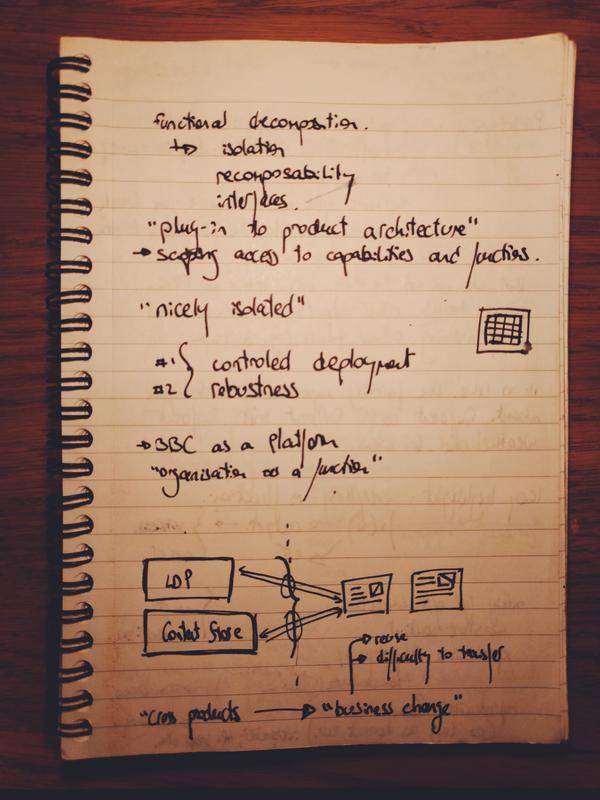 functional decomposition.
↳ isolation
recomposability
interfaces.
"plug-in to product architecture"
→ scoping access to capabilities and functions.
"nicely isolated"
#1 } controled deployment
#2 { robustness
→ BBC as a Platform
"organisation as a function"
LDP
Content Store
→ reuse
→ difficulty to transfer
"cross products → "business change"